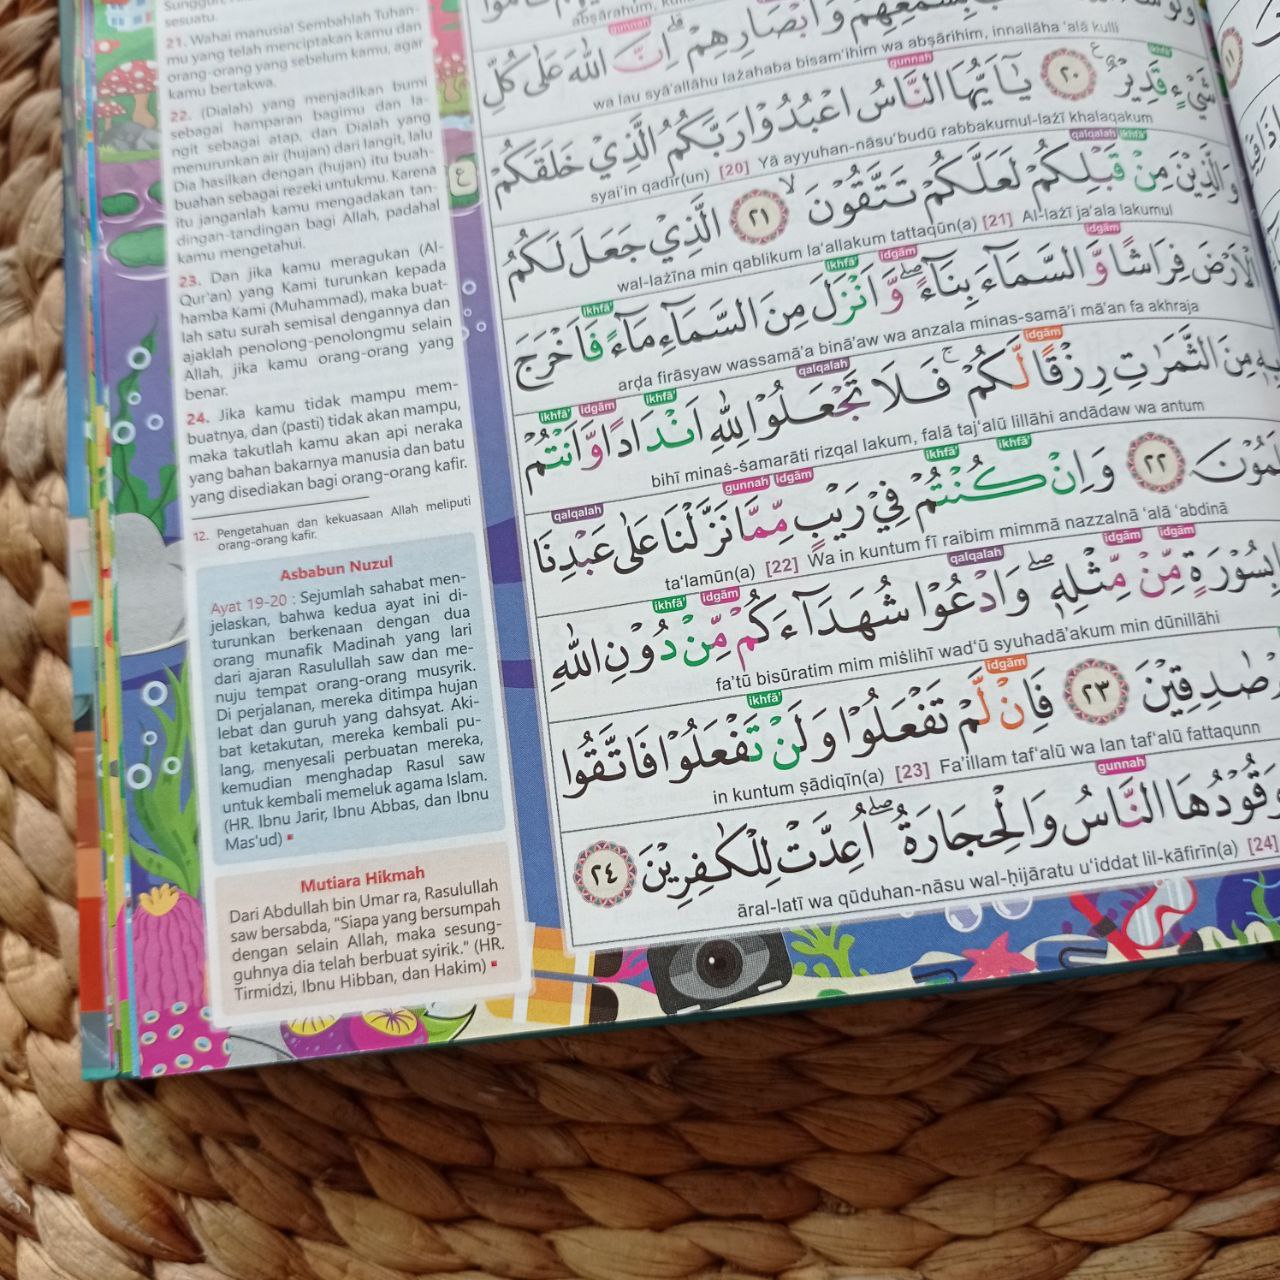 sesuatu.
21. Wahai manusia! Sembahlah Tuhan-
mu yang telah menciptakan kamu dan
orang-orang yang sebelum kamu, agar
kamu bertakwa.
22. (Dialah) yang menjadikan bumi
sebagai hamparan bagimu dan la-
ngit sebagai atap, dan Dialah yang
menurunkan air (hujan) dari langit, lalu
Dia hasilkan dengan (hujan) itu buah-
buahan sebagai rezeki untukmu. Karena
itu janganlah kamu mengadakan tan-
dingan-tandingan bagi Allah, padahal
kamu mengetahui.
23. Dan jika kamu meragukan (Al-
Qur'an) yang Kami turunkan kepada
hamba Kami (Muhammad), maka buat-
lah satu surah semisal dengannya dan
ajaklah penolong-penolongmu selain
Allah, jika kamu orang-orang yang
benar.
24. Jika kamu tidak mampu mem-
buatnya, dan (pasti) tidak akan mampu,
maka takutlah kamu akan api neraka
yang bahan bakarnya manusia dan batu
yang disediakan bagi orang-orang kafir.
12. Pengetahuan dan kekuasaan Allah meliputi
orang-orang kafir.
Asbabun Nuzul
Ayat 19-20 : Sejumlah sahabat men-
jelaskan, bahwa kedua ayat ini di-
turunkan berkenaan dengan dua
orang munafik Madinah yang lari
dari ajaran Rasulullah saw dan me-
nuju tempat orang-orang musyrik.
Di perjalanan, mereka ditimpa hujan
lebat dan guruh yang dahsyat. Aki-
bat ketakutan, mereka kembali pu-
lang, menyesali perbuatan mereka,
kemudian menghadap Rasul saw
untuk kembali memeluk agama Islam.
(HR. Ibnu Jarir, Ibnu Abbas, dan Ibnu
Mas'ud)
Mutiara Hikmah
Dari Abdullah bin Umar ra, Rasulullah
saw bersabda, "Siapa yang bersumpah
dengan selain Allah, maka sesung-
guhnya dia telah berbuat syirik." (HR.
Tirmidzi, Ibnu Hibban, dan Hakim)
ع
gunnah
بِسَمْعِهِمْ وَاَبْصَارِهِمْ ۗ اِنَّ اللّٰهَ عَلٰى كُلِّ
wa lau syā'allāhu lażahaba bisam'ihim wa abṣārihim, innallāha 'alā kulli
gunnah ikhfā'
شَيْءٍ قَدِيْرٌ ࣖ ٢٠ يٰٓاَيُّهَا النَّاسُ اعْبُدُوْا رَبَّكُمُ الَّذِيْ خَلَقَكُمْ
syai'in qadīr(un) [20] Yā ayyuhan-nāsu'budū rabbakumul-lażī khalaqakum
qalqalah ikhfā'
وَالَّذِيْنَ مِنْ قَبْلِكُمْ لَعَلَّكُمْ تَتَّقُوْنَ ۙ ٢١ الَّذِيْ جَعَلَ لَكُمُ
wal-lażīna min qablikum la'allakum tattaqūn(a) [21] Al-lażī ja'ala lakumul
ikhfā' ikhfā' idgām idgām
الْاَرْضَ فِرَاشًا وَّالسَّمَاۤءَ بِنَاۤءً ۖ وَّاَنْزَلَ مِنَ السَّمَاۤءِ مَاۤءً فَاَخْرَجَ
arḍa firāsyaw wassamā'a binā'aw wa anzala minas-samā'i mā'an fa akhraja
ikhfā' idgām ikhfā' qalqalah idgām
بِهٖ مِنَ الثَّمَرٰتِ رِزْقًا لَّكُمْ ۚ فَلَا تَجْعَلُوْا لِلّٰهِ اَنْدَادًا وَّاَنْتُمْ
bihī minaṡ-ṡamarāti rizqal lakum, falā taj'alū lillāhi andādaw wa antum
qalqalah gunnah idgām ikhfā' ikhfā'
وَاِنْ كُنْتُمْ فِيْ رَيْبٍ مِّمَّا نَزَّلْنَا عَلٰى عَبْدِنَا ٢٢
ta'lamūn(a) [22] Wa in kuntum fī raibim mimmā nazzalnā 'alā 'abdinā
ikhfā' idgām qalqalah idgām idgām
بِسُوْرَةٍ مِّنْ مِّثْلِهٖ ۖ وَادْعُوْا شُهَدَاۤءَكُمْ مِّنْ دُوْنِ اللّٰهِ
fa'tū bisūratim mim miṡlihī wad'ū syuhadā'akum min dūnillāhi
ikhfā' idgām
صٰدِقِيْنَ ٢٣ فَاِنْ لَّمْ تَفْعَلُوْا وَلَنْ تَفْعَلُوْا فَاتَّقُوا
in kuntum ṣādiqīn(a) [23] Fa'illam taf'alū wa lan taf'alū fattaqunn
gunnah
وَقُوْدُهَا النَّاسُ وَالْحِجَارَةُ ۖ اُعِدَّتْ لِلْكٰفِرِيْنَ ٢٤
āral-latī wa qūduhan-nāsu wal-ḥijāratu u'iddat lil-kāfirīn(a) [24]